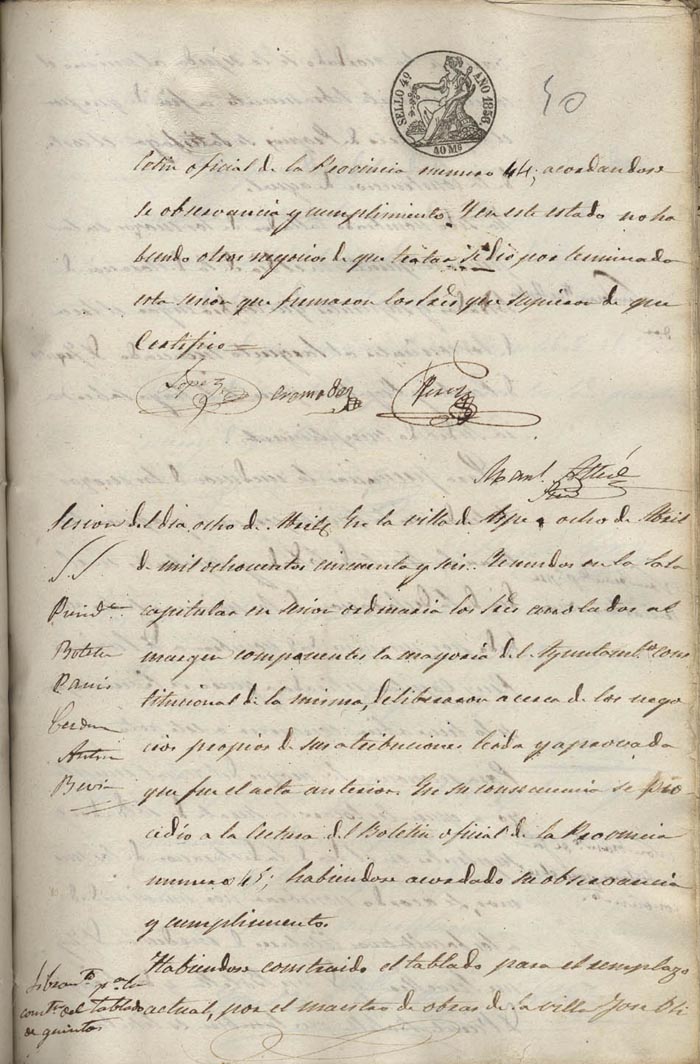 SELLO 4º AÑO 1856.
40 Ms
50
letin oficial de la Provincia numero 44; acordandose
se observancia y cumplimiento. Y en este estado no ha
biendo otros negocios de que tratar se dió por terminada
esta sesion que firmaron los Sres que supieron de que
Certifico=
Lopez
Cremades
Perez
Manl.
Sesion del dia ocho de Abril. En la villa de Aspe a ocho de Abril
SS.
de mil ochocientos cincuenta y seis. Reunidos en la Sala
Presidte.
capitular en sesion ordinaria los Sres anotados al
Botella
margen componentes la mayoria del Ayuntamto. cons
Pavis
titucional de la misma, deliberaron acerca de los nego
Cerdan
cios propios de sus atribuciones leida y aprovada
Anton
que fue el acta anterior. En su consecuencia se pro
cedio a la lectura del Boletin oficial de la Provincia
numero 45; habiendose acordado su observancia
y cumplimiento.
Habiendose construido el tablado para el remplazo
Libramto. pa. la
actual, por el maestro de obras de la villa Jose
del tablado
de quintas